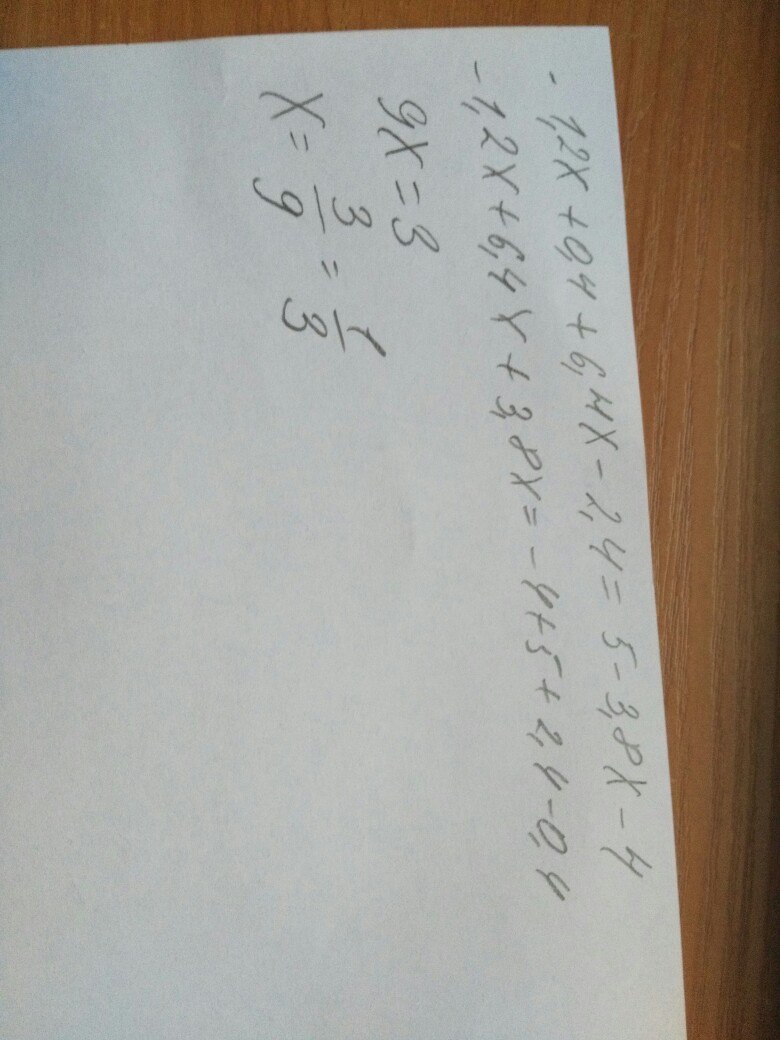 - 1,2x + 0,4 + 6,4x - 2,4 = 5 - 3,8x - 4
- 1,2x + 6,4x + 3,8x = - 4 + 5 + 2,4 - 0,4
9x = 3
x = 3/9 = 1/3